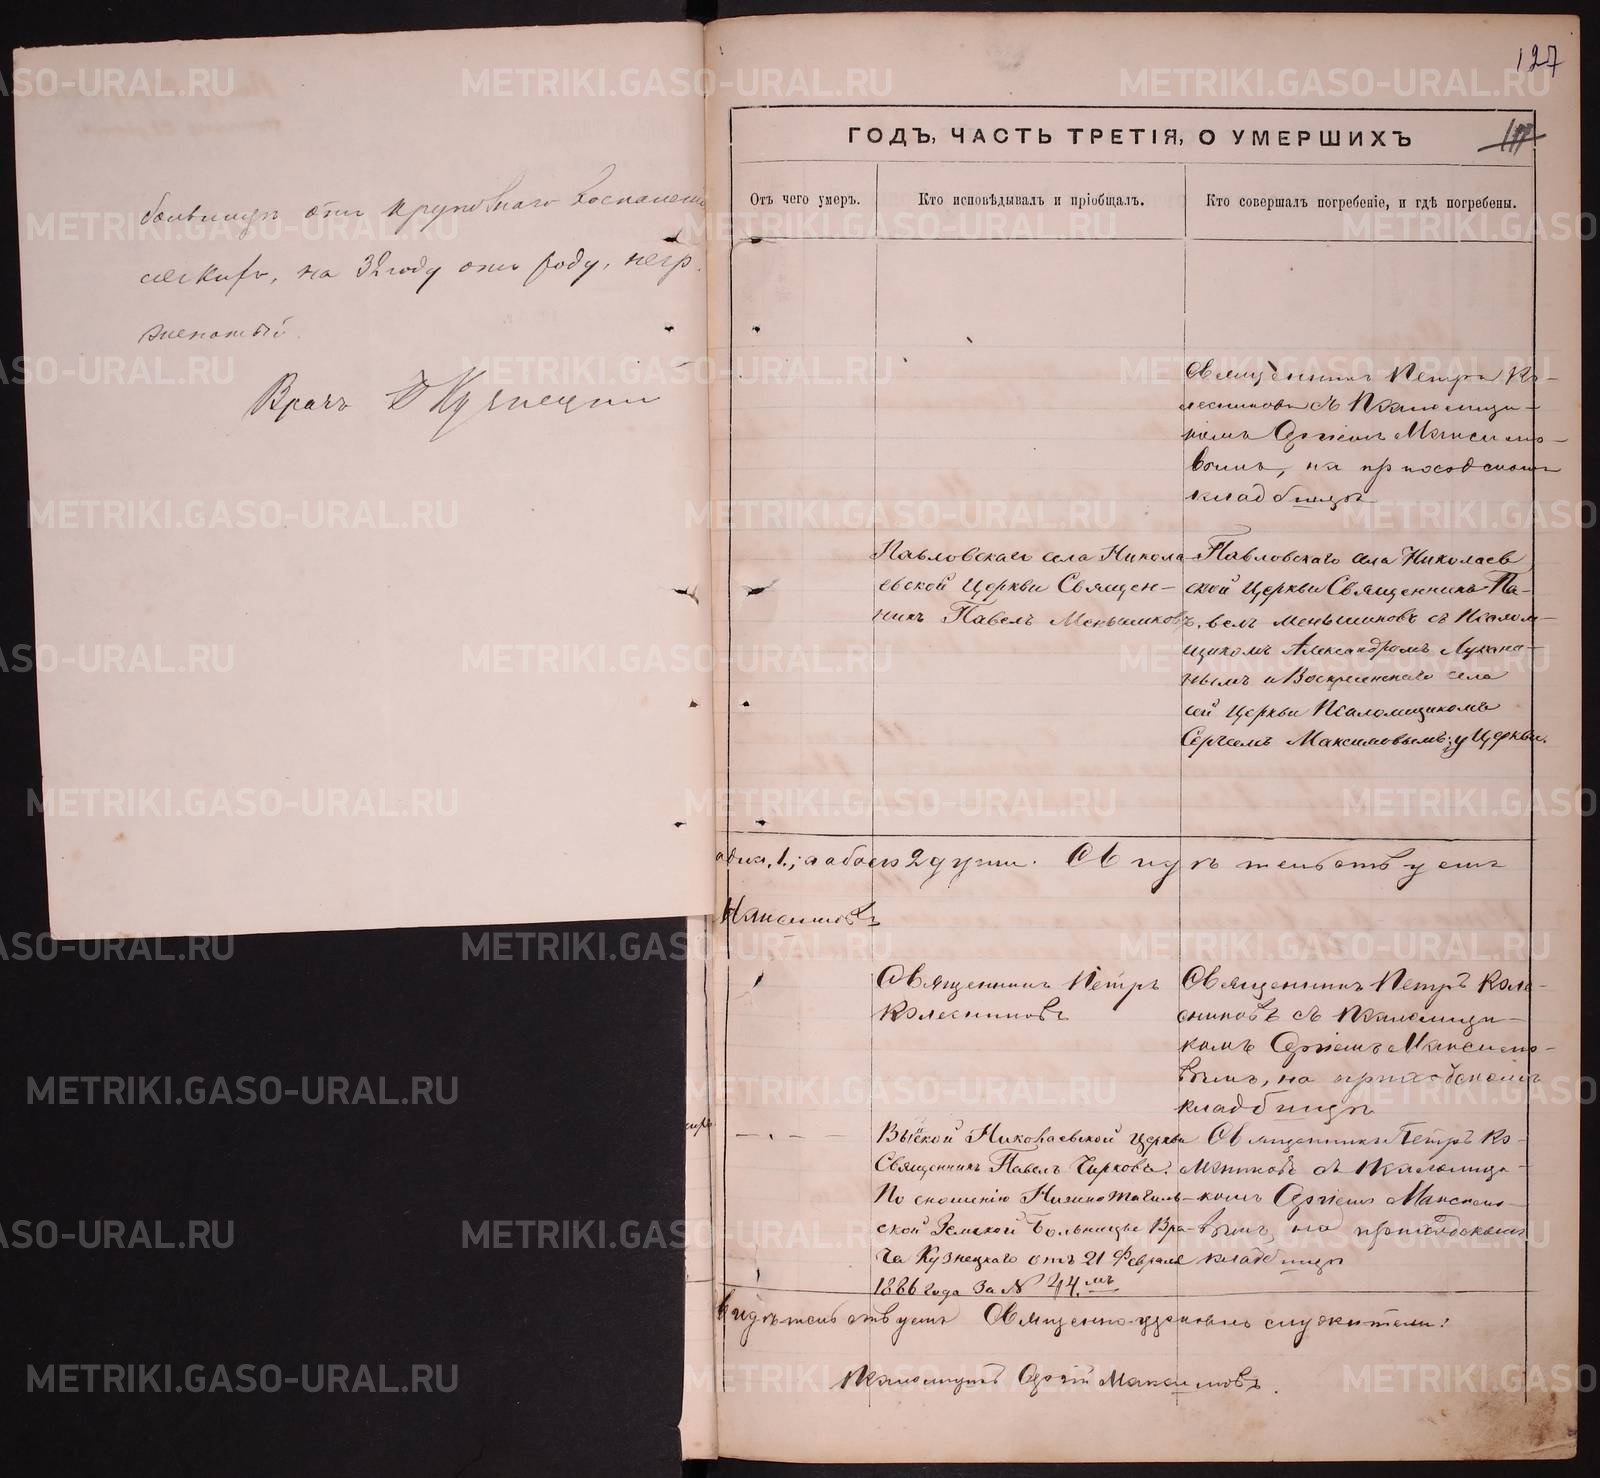 127
больницѣ отъ крупознаго воспаленія
легкихъ, на 32 году отъ роду,
женатый.
Врачъ Кузнецкій
ГОДЪ, ЧАСТЬ ТРЕТІЯ, О УМЕРШИХЪ
Отъ чего умеръ.
Кто исповѣдывалъ и пріобщалъ.
Кто совершалъ погребеніе, и гдѣ погребены.
Священникъ Петръ Ко-
лесниковъ съ Псаломщи-
комъ Сергіемъ Максимо-
вымъ, на приходскомъ
кладбищѣ
Павловскаго села Никола
евской Церкви Священ-
никъ Павелъ Меньшиковъ
Павловскаго села Николаев
ской Церкви Священникъ Па-
велъ Меньшиковъ съ Псалом-
щикомъ Александромъ
нымъ и Воскресенскаго села
сей Церкви Псаломщикомъ
Сергѣемъ Максимовымъ; у Церкви.
1.; а обоего 2 души. Свидѣтельствуемъ
Максимовъ
Священникъ Петръ
Колесниковъ
Священникъ Петръ Коле-
сниковъ съ Псаломщи-
комъ Сергіемъ Максимо-
вымъ, на приходскомъ
кладбищѣ
Выйской Николаевской Церкви
Священникъ Павелъ Чирковъ.
По сношенію Нижнотагиль-
ской Земской Больницы Вра-
ча Кузнецкаго отъ 21 Февраля
1886 года За № 44.мъ
Священникъ Петръ Ко-
съ Псаломщи-
комъ Сергіемъ Максимо-
вымъ, на приходскомъ
кладбищѣ
видѣтельствуемъ Священно-церковно служители:
Псаломщикъ Сергій Максимовъ.
METRIKI.GASO-URAL.RU